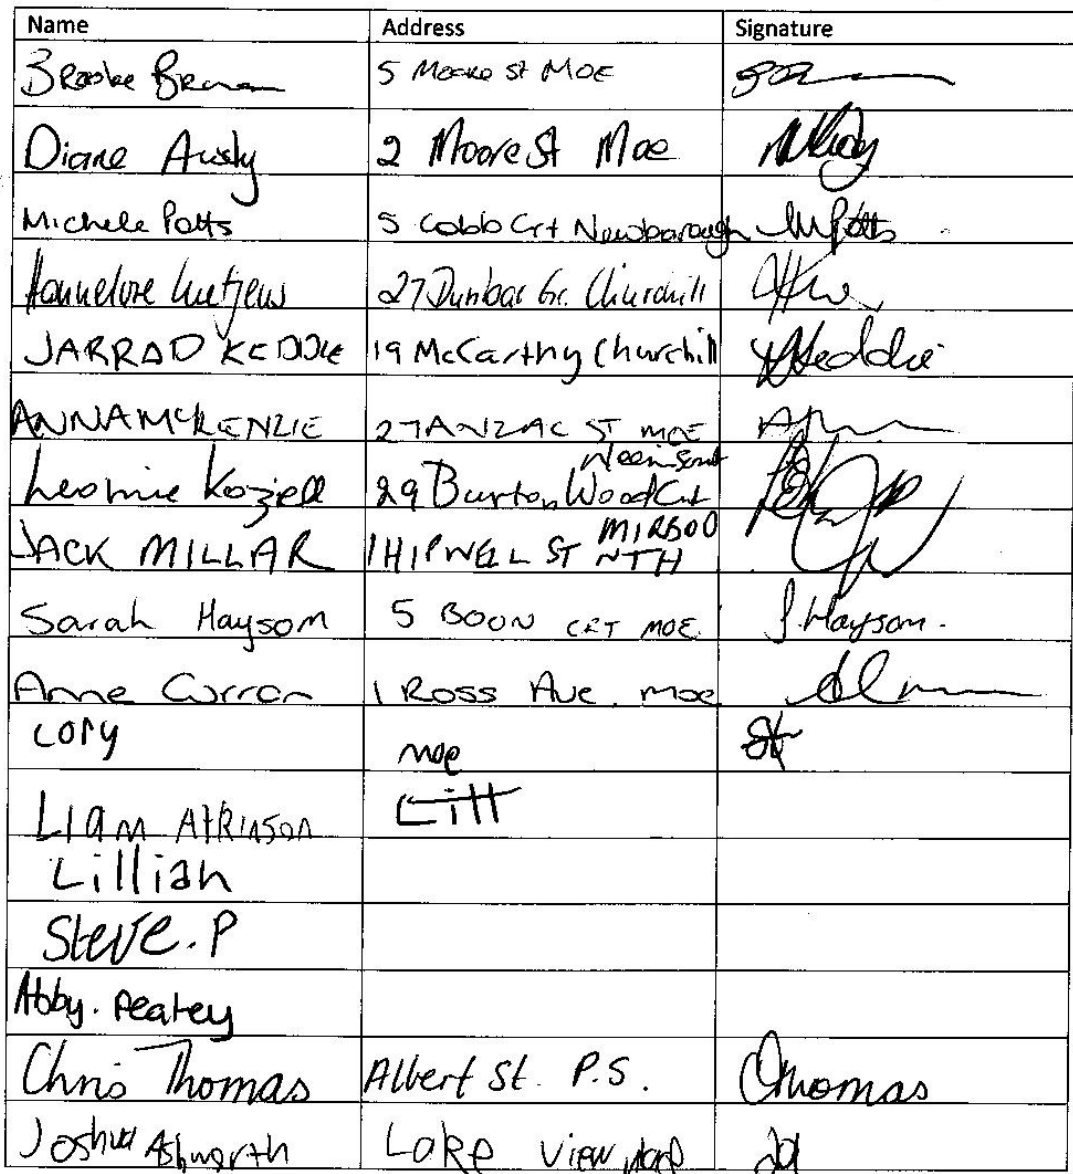 Name Address Signature
Brooke 5 Moore St MOE
Diane 2 Moore St Moe
Michele Potts 5 Cobb Crt Newborough MPotts
Hannelore Lutjens 27 Dunbar Gr. Churchill
JARRAD KEDDIE 19 McCarthy Churchill Keddie
ANNA McKENZIE 27 ANZAC ST MOE
Leonie Koziell 29 Burton Wood Crt
JACK MILLAR 1 HIPWELL ST MIRBOO
NTH
Sarah Haysom 5 BOON CRT MOE S. Haysom.
Anne Curran 1 Ross Ave. Moe
Cory Moe
Liam Atkinson
Lillian
Steve. P
Abby. Peatey
Chris Thomas Albert St. P.S. CThomas
Joshua Ashworth Lake View